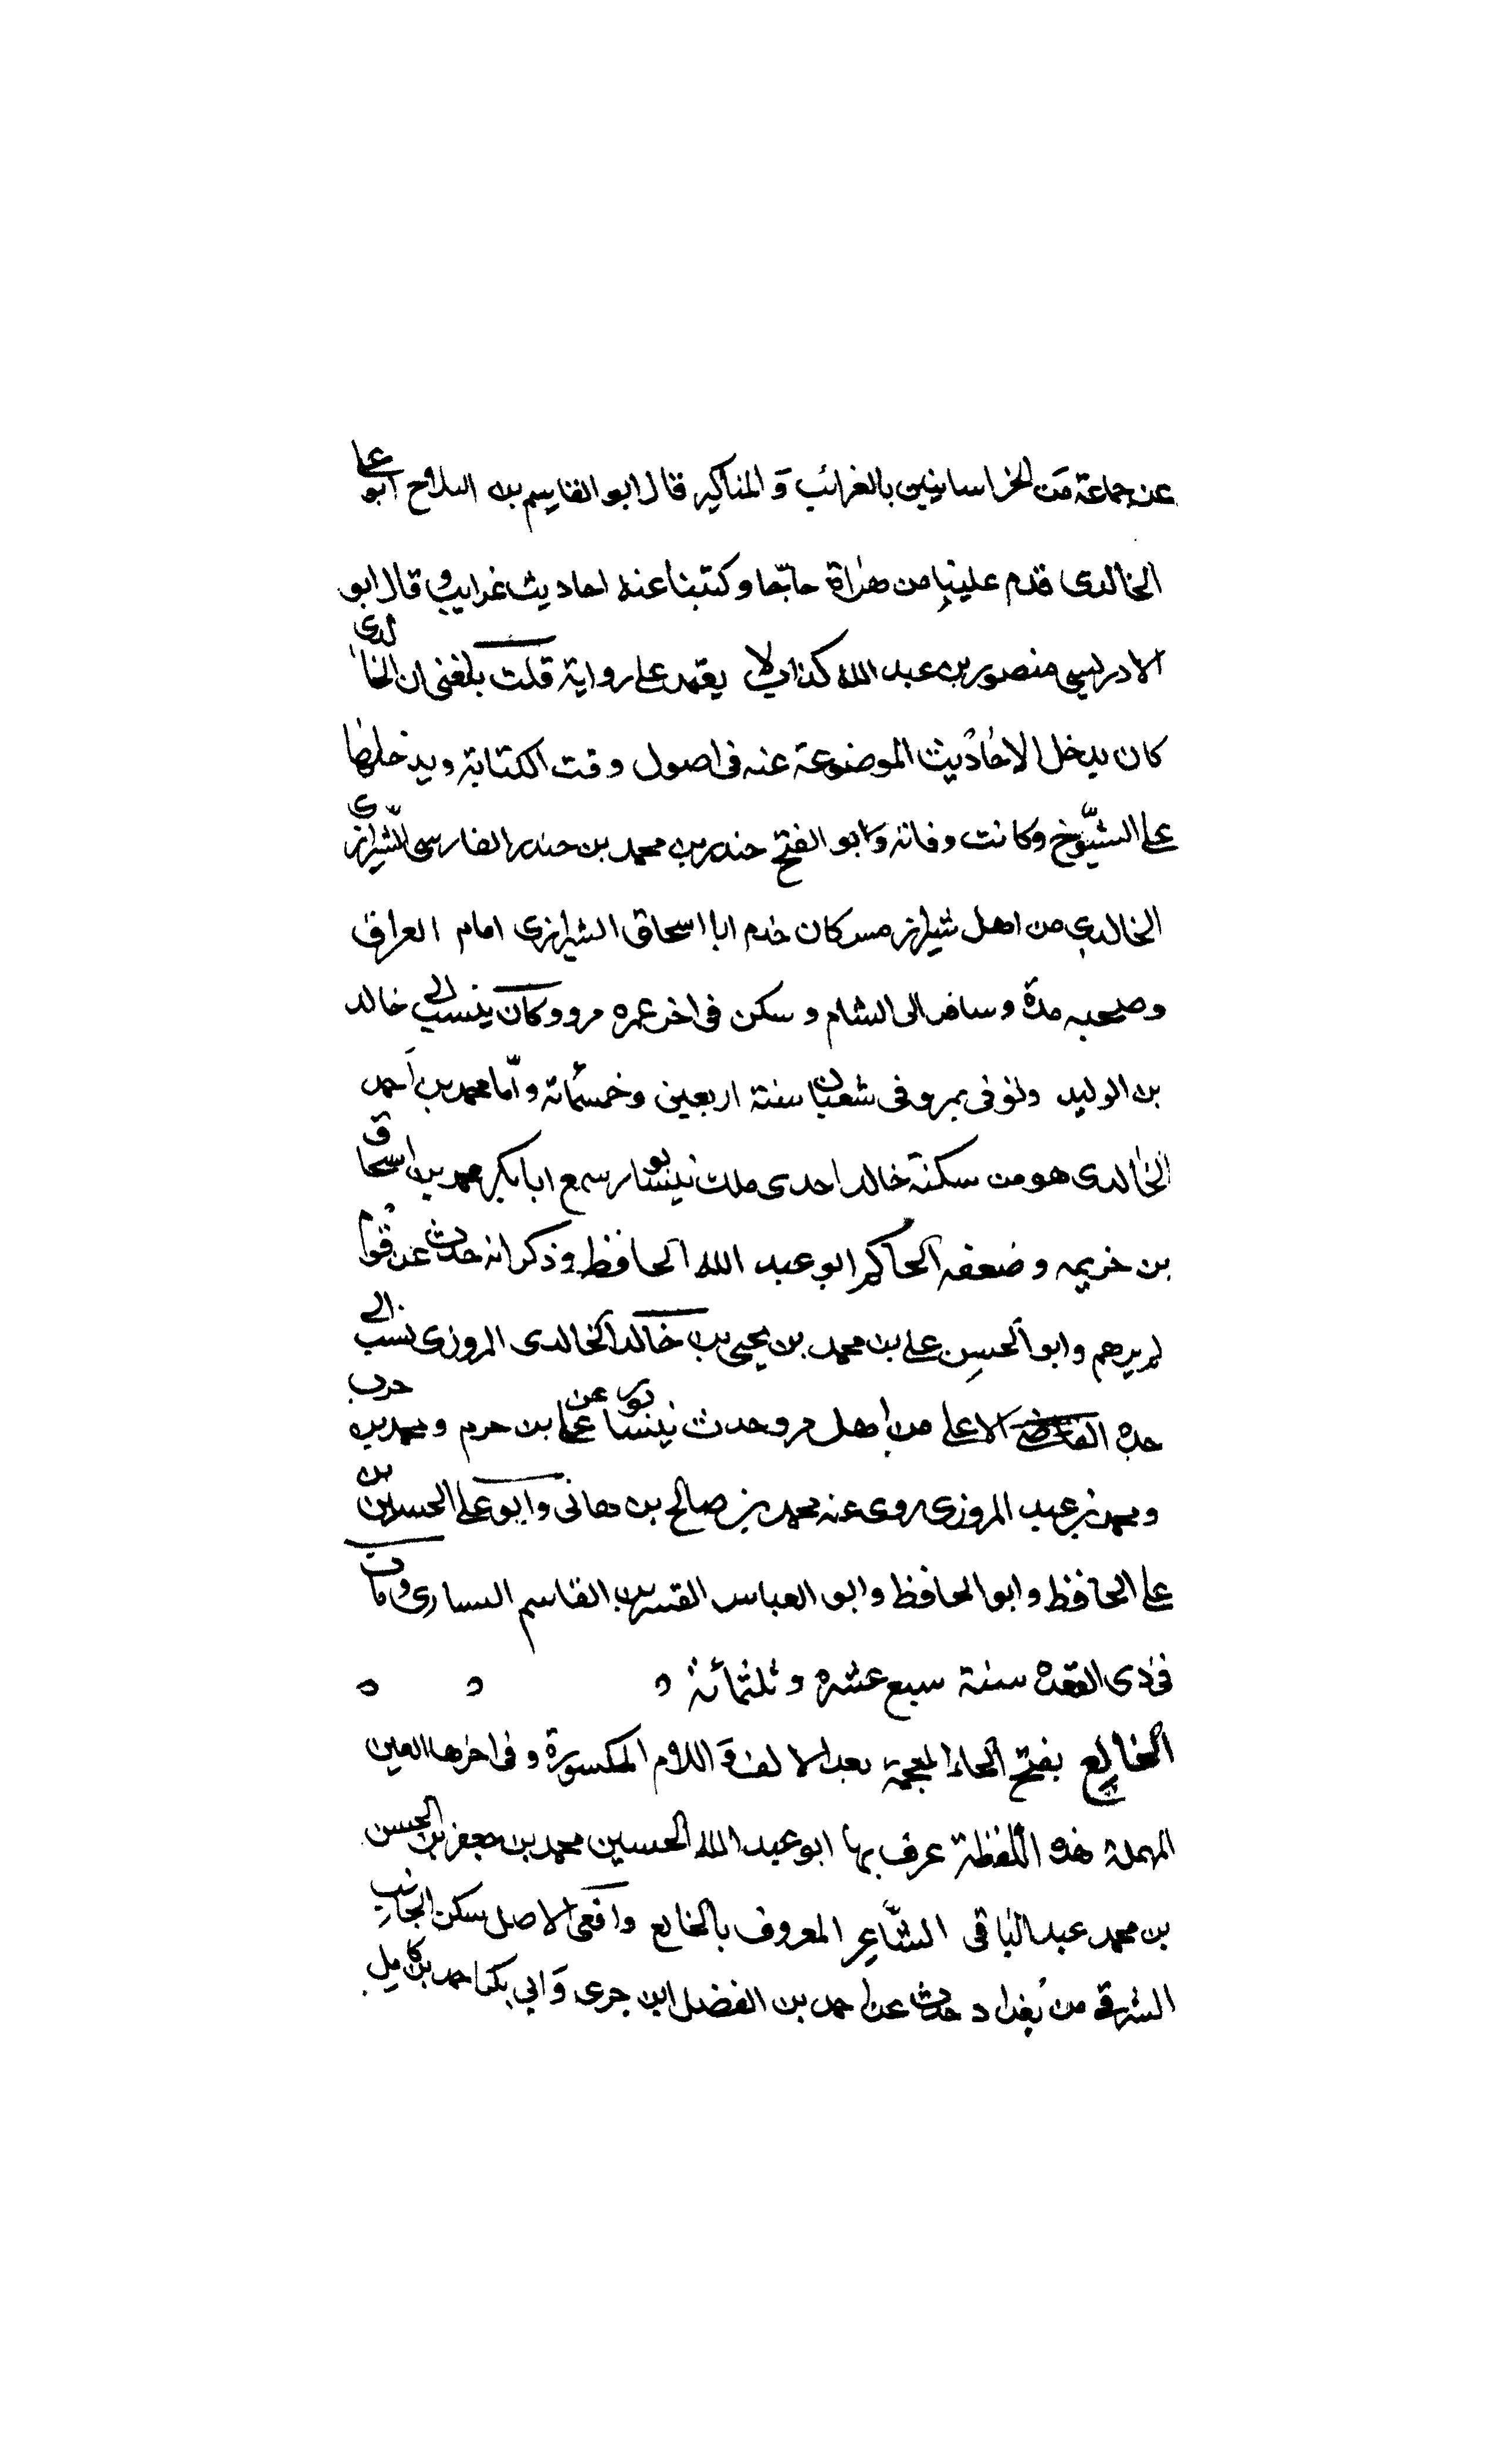 عن جماعة من الخراسانيين بالغرائب و المناكير قال ابو القاسم بن الثلاج ابو على
الخالدى قدم علينا من هراة حاجّا و كتبنا عنه احاديث غرايب و قال ابو
الادريسى منصور بن عبد الله كذاب لا يعتمد على رواية قلت بلغنى ان الخالدى
كان يدخل الاحاديث الموضوعة عنه فى اصول وقت الكتابة ويدخلها
على الشيّوخ وكانت وفاته و ابو الفتح حندر بن محمد بن حندر الفارسى الشّيرازى
الخالدي من اهل شيراز كان خدم ابا اسحاق الشيرازى امام العراق
وصحبه مدة و سافر الى الشام و سكن فى اخر عمره مرو وكان ينسب الى خالد
بن الوليد وتوفى بمرو فى شعبان سنة اربعين وخمسمائة و امّا محمد بن أحمد
الخالدى هو من سكنة خالد احدى نيسابور سمع ابا بكر محمد بن اسحاق
بن خزيمه و ضعفه الحاكم ابو عبد الله الحافظ و ذكر انه حدث عن قوم
لم يرهم و ابو الحسن على بن محمد بن يحيى بن خالد الخالدى المروزى نسب الى
جده الاعلى من اهل مرو حدث نيسابور عن على بن حرم و محمد بن حرب
و محمد بن عبد المروزى روى عنه محمد بن صالح بن هانى و ابو على الحسين بن
على الحافظ و ابو الحافظ و ابو العباس القاسم بن القاسم السيارى و مات
فى ذى القعده سنة سبع عشره و ثلثمائة
الخالع بفتح الخاء المعجمة بعد الالف و اللام المكسورة و فى اخرها العين
المهملة هذه اللّفظة عرف بها ابو عبد الله الحسين محمد بن جعفر بن الحسن
بن محمد عبد الباقى الشّاعر المعروف بالخالع وافقى الاصل سكن الجانب
الشرقى من بغداد حدث عن احمد بن الفضل ابن جرى و ابي بكر احمد بن كامل